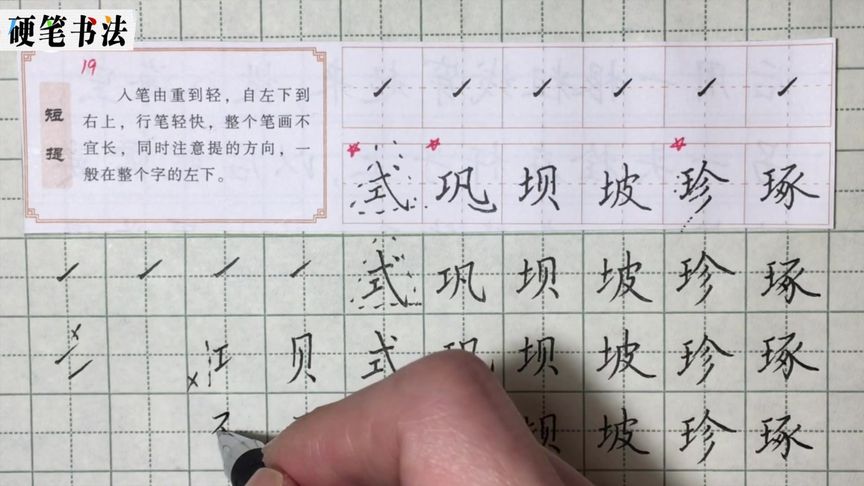 硬笔书法
19
短提
入笔由重到轻，自左下到
右上，行笔轻快，整个笔画不
宜长，同时注意提的方向，一
般在整个字的左下。
式巩坝坡珍琢
式巩坝坡珍琢
江贝式巩坝坡珍琢
坝坡珍琢